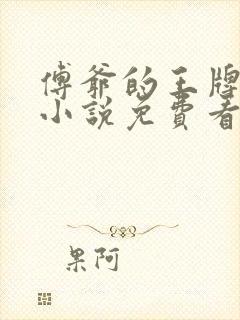 傅爷的王牌
小说免費看
果阿